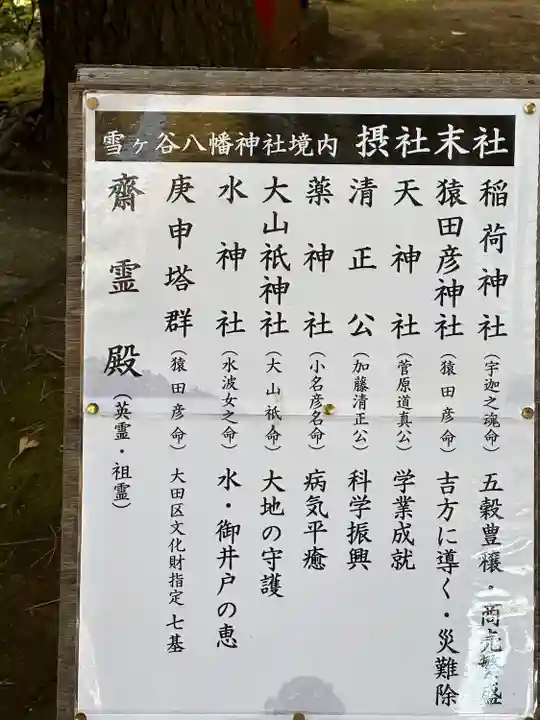 雪ヶ谷八幡神社境内 摂社末社
稲荷神社(宇迦之魂命)五穀豊穣・商売繁盛
猿田彦神社(猿田彦命)吉方に導く・災難除
天神社(菅原道真公)学業成就
清正公(加藤清正公)科学振興
薬神社(小名彦名命)病気平癒
大山祇神社(大山祇命)大地の守護
水神社(水波女之命)水・御井戸の恵
庚申塔群(猿田彦命)大田区文化財指定 七基
齋霊殿(英霊・祖霊)